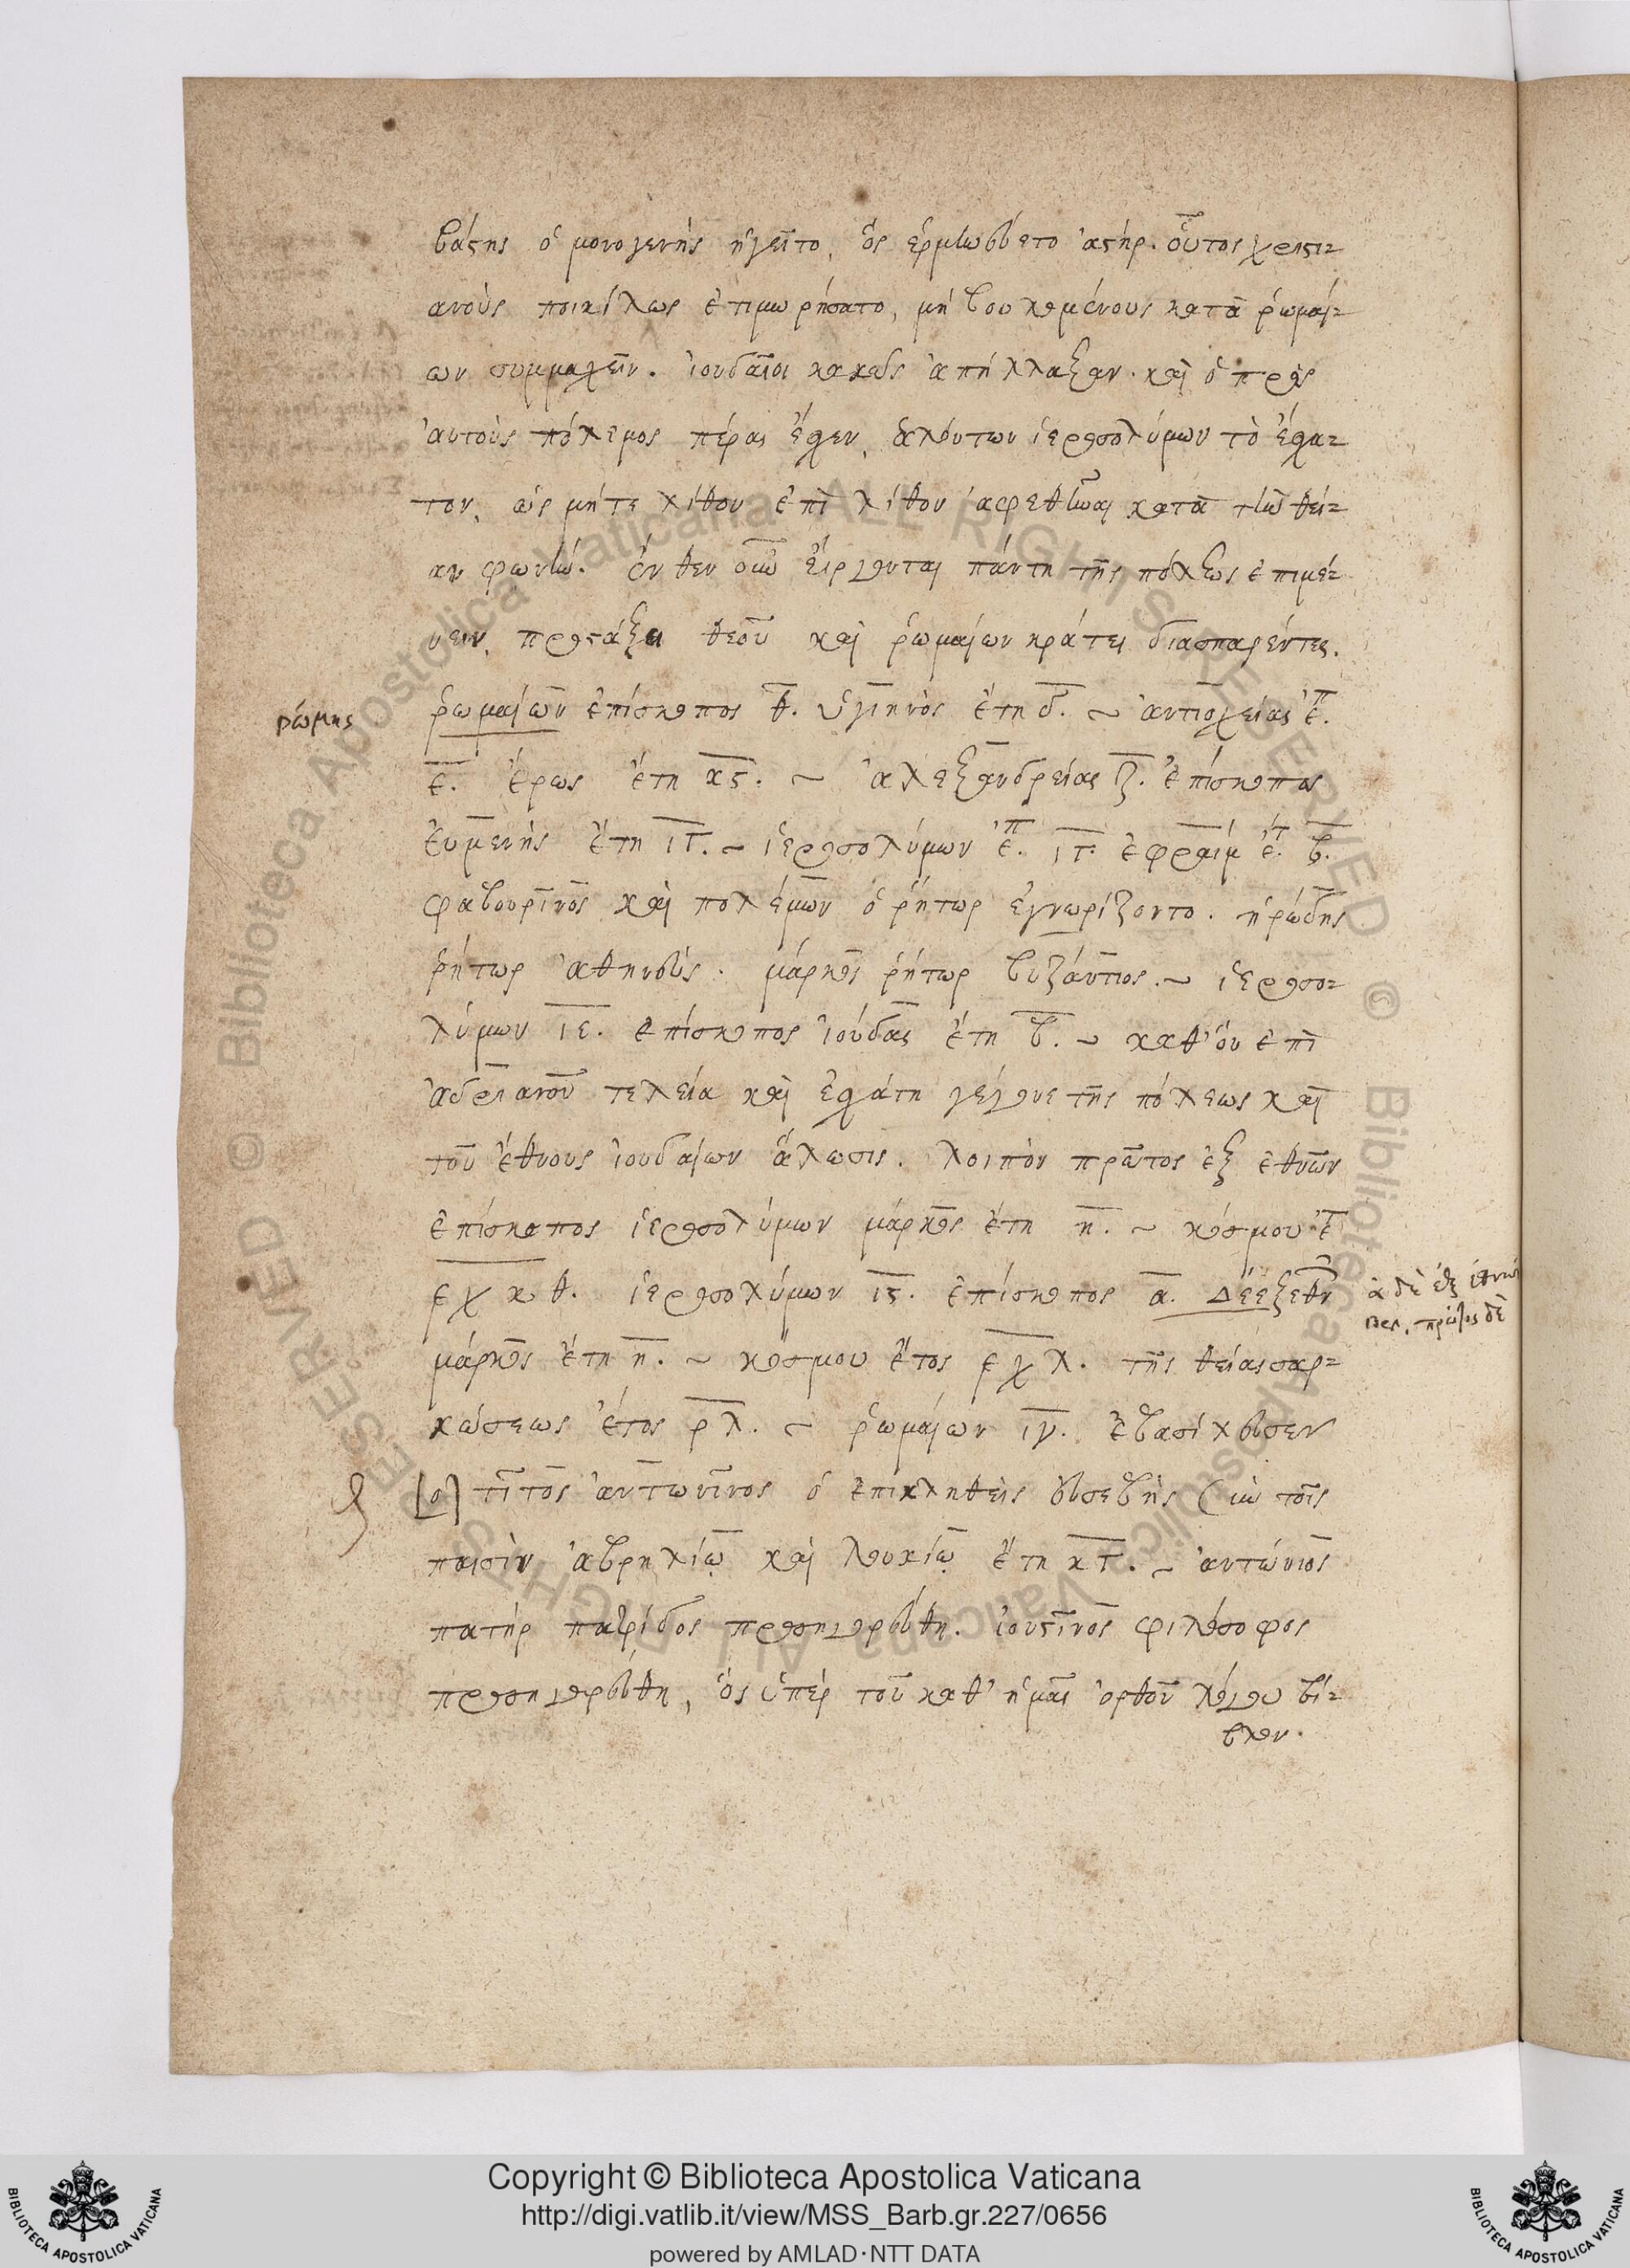 βάσης ὁ μονογενὴς ἡγεῖτο, ὃς ἑρμηνεύετο ἀστήρ. οὗτος χριστι-
ανοὺς ποικίλως ἐτιμωρήσατο, μὴ βουλομένους κατὰ ῥωμαί-
ων συμμαχεῖν. ἰουδαῖοι κακῶς ἀπήλλαξαν. καὶ ὁ πρὸς
αὐτοὺς πόλεμος πέρας ἔσχεν, ἁλόντων ἱεροσολύμων τὸ ἔσχα-
τον, ὡς μήτε λίθον ἐπὶ λίθον ἀφεθῆναι κατὰ τὴν θεί-
αν φωνήν. ἔνθεν οὖν εἴργονται πάντη τῆς πόλεως ἐπιμέ-
νειν, προστάξει θεοῦ καὶ ῥωμαίων κράτει διασπαρέντες.
ῥώμης
ῥωμαίων ἐπίσκοπος θ. ὑγιηνὸς ἔτη δ. ~ ἀντιοχείας ἐπ.
ε. ἔρως ἔτη κς. ~ ἀλεξανδρείας ζ. ἐπίσκοπος
εὐμενὴς ἔτη ιγ. ~ ἱεροσολύμων ἐπ. ιγ. ἐφραὶμ ἔτ. β.
φαβουρῖνος καὶ πολέμων ὁ ῥήτωρ ἐγνωρίζοντο. ἡρώδης
ῥήτωρ ἀθηναῖος. μάρκος ῥήτωρ βυζάντιος. ~ ἱεροσο-
λύμων ιε. ἐπίσκοπος ἰούδας ἔτη β. ~ καθ' ὃν ἐπὶ
ἀδριανοῦ τελεία καὶ ἐσχάτη γέγονε τῆς πόλεως καὶ
τοῦ ἔθνους ἰουδαίων ἅλωσις. λοιπὸν πρῶτος ἐξ ἐθνῶν
ἐπίσκοπος ἱεροσολύμων μάρκος ἔτη η. ~ κόσμου ἔτ
ͅεχκθ. ἱεροσολύμων ις. ἐπίσκοπος α. δὲ ἐξ ἐθν
ἁ δὲ ἐξ ἐθνῶν
πρῶτος δὲ
μάρκος ἔτη η. ~ κόσμου ἔτος ͅεχλ. τῆς θείας σαρ-
κώσεως ἔτος ρλ. ~ ῥωμαίων ιγ. ἐβασίλευσεν
[ὁ] τίτος ἀντωνῖνος ὁ ἐπικληθεὶς εὐσεβὴς σὺν τοῖς
παισὶν αὐρηλίῳ καὶ λουκίῳ ἔτη κγ. ~ ἀντώνιος
πατὴρ πατρίδος προσηγορεύθη. ἰουστῖνος φιλόσοφος
προσηγορεύθη, ὃς ὑπὲρ τοῦ καθ' ἡμᾶς ὀρθοῦ λόγου βί-
βλον.
Copyright © Biblioteca Apostolica Vaticana
http://digi.vatlib.it/view/MSS_Barb.gr.227/0656
powered by AMLAD·NTT DATA
BIBLIOTECA APOSTOLICA VATICANA
BIBLIOTECA APOSTOLICA VATICANA
Biblioteca Apostolica Vaticana ALL RIGHTS RESERVED ©
Biblioteca Apostolica Vaticana ALL RIGHTS RESERVED ©